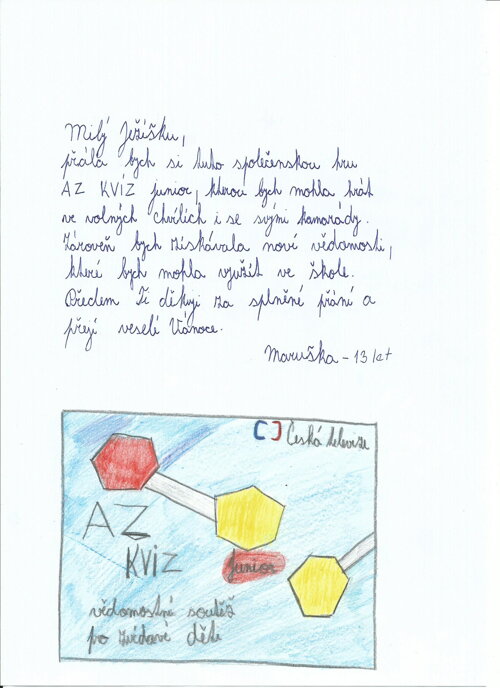 Milý Ježíšku,
přála bych si tuto společenskou hru
AZ KVÍZ junior, kterou bych mohla hrát
ve volných chvílích i se svými kamarády.
Zároveň bych získávala nové vědomosti,
které bych mohla využít ve škole.
Předem Ti děkuji za splněné přání a
přeji veselé Vánoce.
Maruška - 13 let
Česká televize
AZ
KVIZ
junior
vědomostní soutěž
pro zvídavé děti